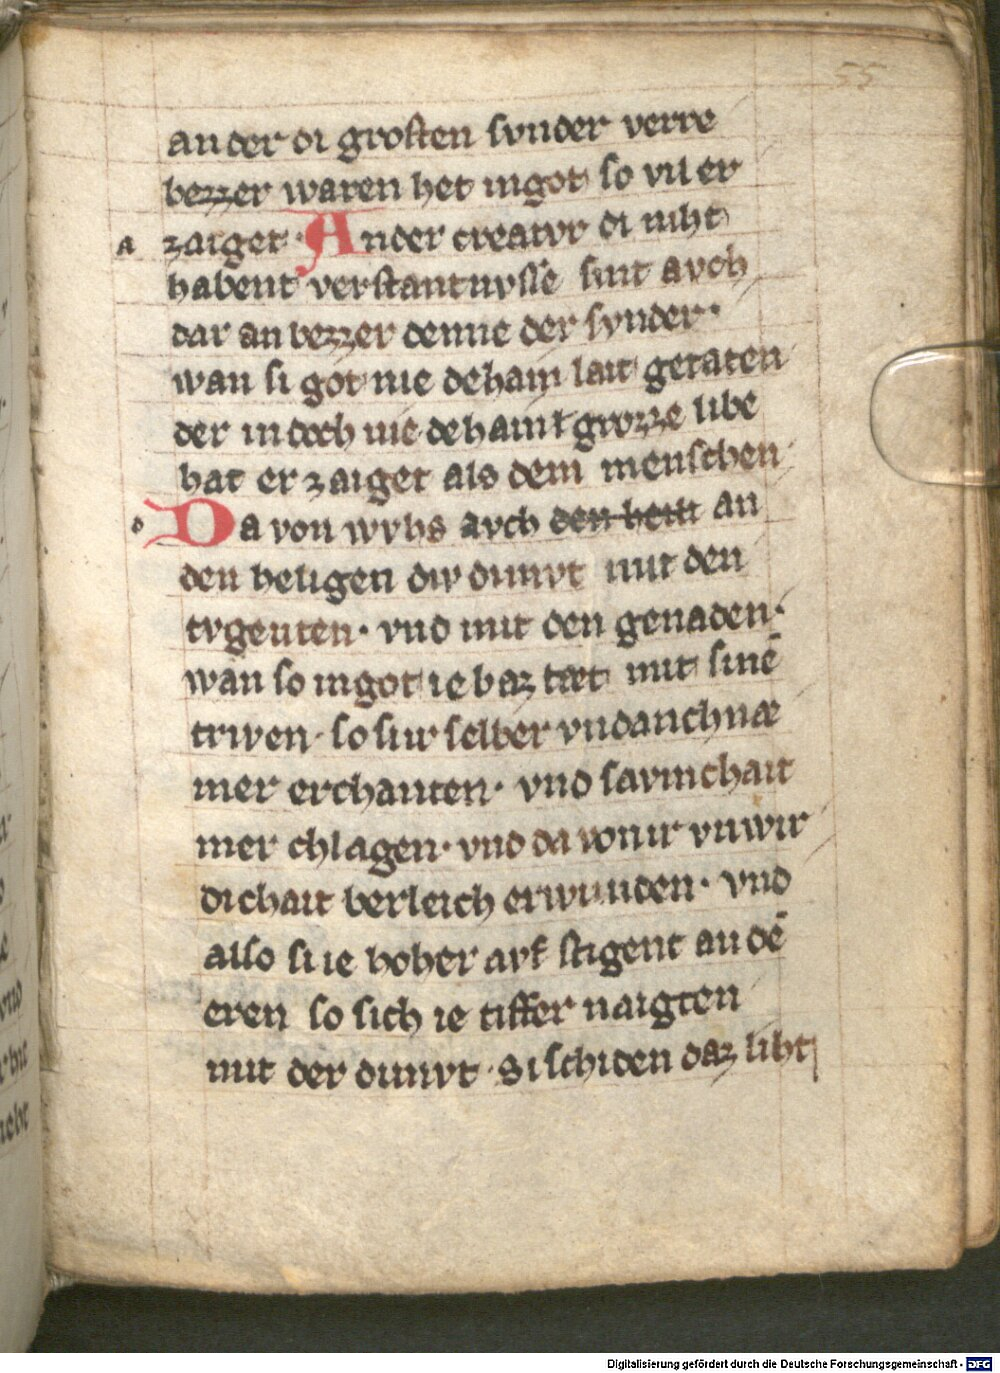 55
an der di grosten svnder verre
bezzer waren het ingot so vil er
a zaiget · Ander creatvr di niht
habent verstantnvsse sint avch
dar an bezzer denne der svnder ·
wan si got nie dehain lait getaten
der in doch nie dehain grozze libe
hat er zaiget als dem menschen
d Da von wvhs avch den hein an
den heligen div dimvt mit den
tvgenten · vnd mit den genaden ·
wan so in got ie baz tæt mit sinē
triwen · so siir selber vndanchnæ
mer erchanten · vnd savmchait
mer chlagen · vnd da von ir vnwir
dichait berleich erwunden · vnd
also si ie hoher avf stigent an dē
eren so sich ie tiffer naigten
mit der dimvt · Si schiden daz liht
Digitalisierung gefördert durch die Deutsche Forschungsgemeinschaft - DFG